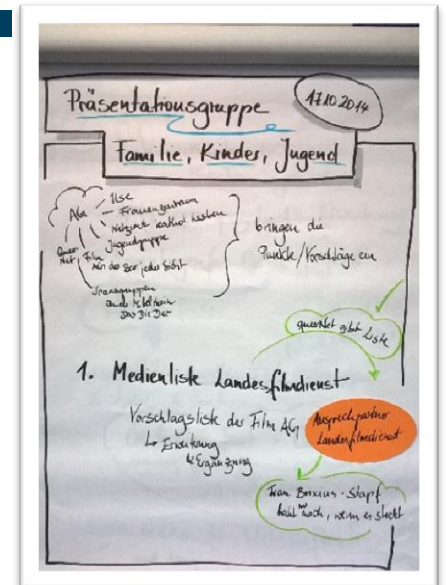 Präsentationsgruppe
17.10.2014
Familie, Kinder, Jugend
Ilse
Frauenzentrum
Netzwerk kathol Lesben
Jugendgruppe
QueerNet
Film
Transgruppen
bringen die
Punkte/Vorschläge ein
queerNet gibt Liste
1. Medienliste Landesfilmdienst
Vorschlagsliste der Film AG
↳ Erweiterung
↳ Ergänzung
Ansprechpartner
Landesfilmdienst
Frau Brixius-Stapf
hakt nach, wenn es stockt